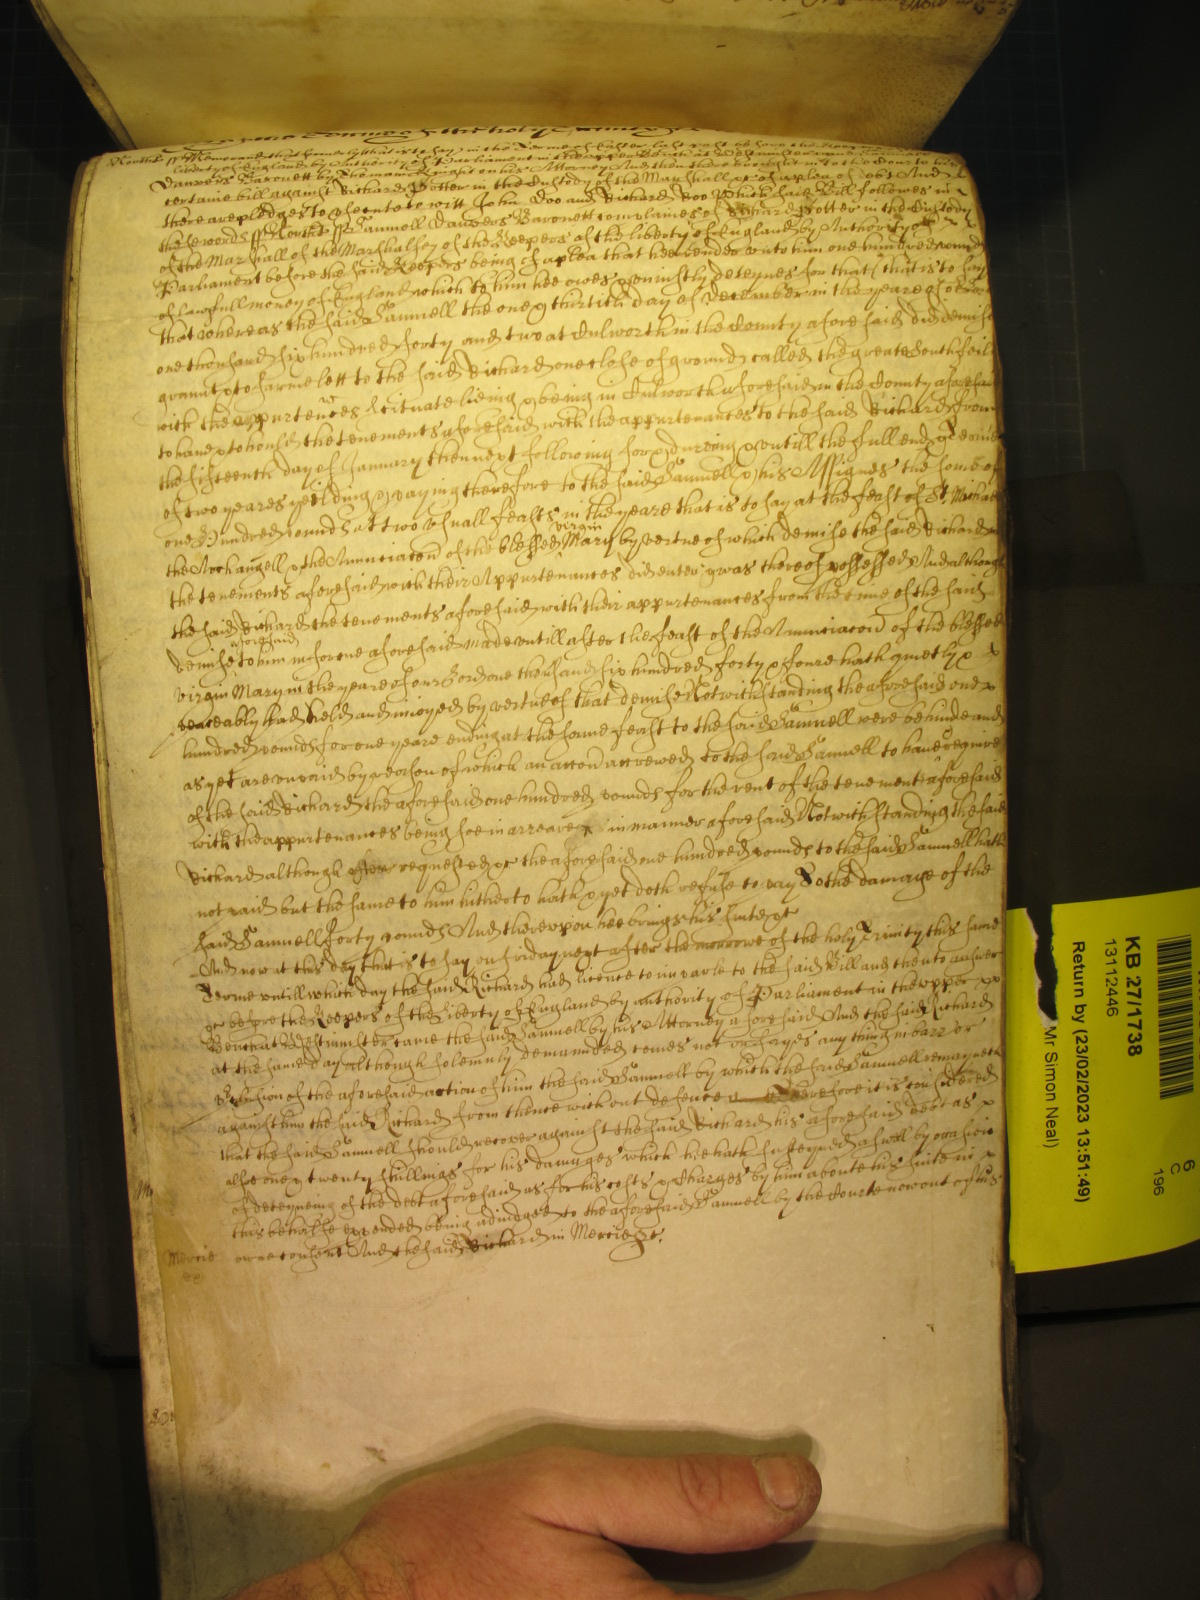 North ss Memorand that formerly that is to say in the Terme of Easter last past before the Keepers
liberty of England by Authority of Parliament in the upper Bench at Westminster came Samuell
Danvers Baronett by Attorney And then there brought into the Court here
certaine bill against Richard Potter in the Custody of the Marshall &c of a plea of debt And
there are pledges to psecute to witt John Doo and Richard Roo Which said Bill followes in
these words ss North ss Samuell Danvers Baronett complaines of Richard Potter in the Custody
of the Marshall of the Marshalsey of the Keepers of the liberty of England by Authority of
Parliament before the said Keepers being of a plea that hee render unto him one hundred pounds
of lawfull money of England which to him hee owes & uniustly deteynes for that (that is to say
that whereas the said Samuell the one & thirtith day of December in the yeare of o^r Lord
one thousand six hundred forty and two at Culworth in the County aforesaid did demise
grant & to farme lett to the said Richard one close of ground called the greate Southfeild
with the appurtences scituate lieing & being in Culworth aforesaid in the County aforesaid
to have & to hould the tenements aforesaid with the appurtenances to the said Richard from
the fifteenth day of January then next following for & dureing & untill the full end & terme
of two yeares yeilding & paying therefore to the said Samuell & his Assignes the some of
one Hundred pounds at two usuall feasts in the yeare that is to say at the feast of St. Michaell
the Archangell & the Anunciacon of the blessed virgin Mary by vertue of which demise the said Richard
the tenements aforesaid with their Appurtenances did enter & was thereof possessed And although
the said Richard the tenements aforesaid with their appurtenances from the time of the said
demise aforesaid to him in forme aforesaid made untill after the feast of the Anunciacon of the blessed
virgin Mary in the yeare of our Lord one thousand six hundred forty & foure hath quietly &
peaceably had held and inioyed by vertue of that demise Notwithstanding the aforesaid one
hundred pounds for one yeare ending at the same feast to the said Samuell were behinde and
as yet are unpaid by reason of which an accon accrewed to the said Samuell to have & require
of the said Richard the aforesaid one hundred pounds for the rent of the tenements aforesaid
with the appurtenances being soe in arreare in manner aforesaid Notwithstanding the said
Richard although often requested &c the aforesaid one hundred pounds to the said Samuell hath
not paid but the same to him hitherto hath & yet doth refuse to pay To the damage of the
said Samuell forty pounds And thereupon hee brings his suite &c
And now at this day that is to say on friday next after the morrowe of the holy Trinity this same
Terme untill which day the said Richard had licence to imparle to the said Bill and then to answer
&c before the Keepers of the Liberty of England by authority of Parliament in the upper
Bench at Westminster came the said Samuell by his Attorney aforesaid And the said Richard
at the same day although solemnly demaunded comes not nor sayes any thing in barr or
Preclusion of the aforesaid action of him the said Samuell by which the said Samuell remayneth
against him the said Richard from thence without defence Therefore it is considered
that the said Samuell should recover against the said Richard his aforesaid debt as
alsoe & twenty shillings for his damages which he hath susteyned aswell by occasion
of deteyneing of the debt aforesaid as for his costs & Charges by him aboute his suite in
this behalfe expended being adiudged to the aforesaid Samuell by the Courte now out of his
owne consent And the said Richard in Mercie &c.
Mercie
KB 27/1738
13112446
Return by (23/02/2023 13:51:49)
Mr Simon Neal)
6
C
196